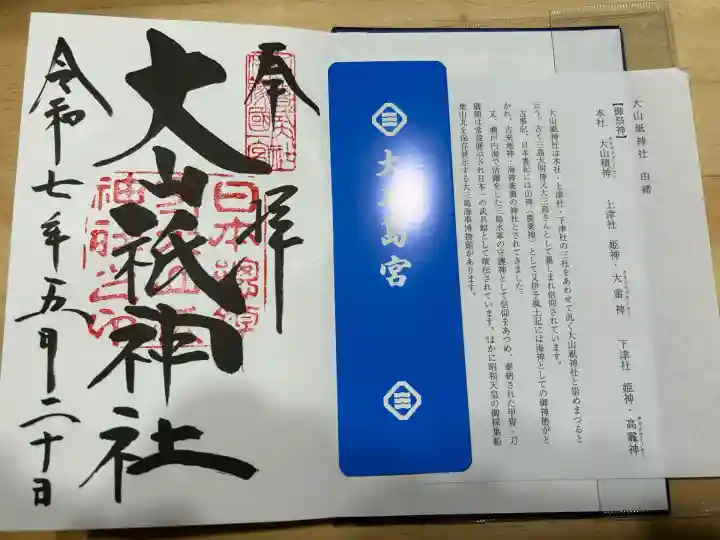 奉拝
大山祇神社
令和七年五月二十日
日本總鎮守
大三島宮
大山祇神社 由緒
【御祭神】
本社 大山積神 上津社 姫神・大雷神 下津社 姫神・高龗神
大山祇神社は本社・上津社・下津社の三社をあわせて汎く大山祇神社と崇めまつると
云う。古く三島大明神又大三島さんとして親しまれ信仰されています。
古事記、日本書記には山神(農業神)として又伊予風土記には海神としての御神徳がと
かれ、古来地神・海神兼備の神社とされてきました。
又、瀬戸内海で活躍をした三島水軍の守護神として信仰をあつめ、奉納された甲冑・刀
鎧類は常設展示され日本一の武具館として喧伝されています。ほかに昭和天皇の御採集船
葉山丸を保存展示する大三島海事博物館があります。